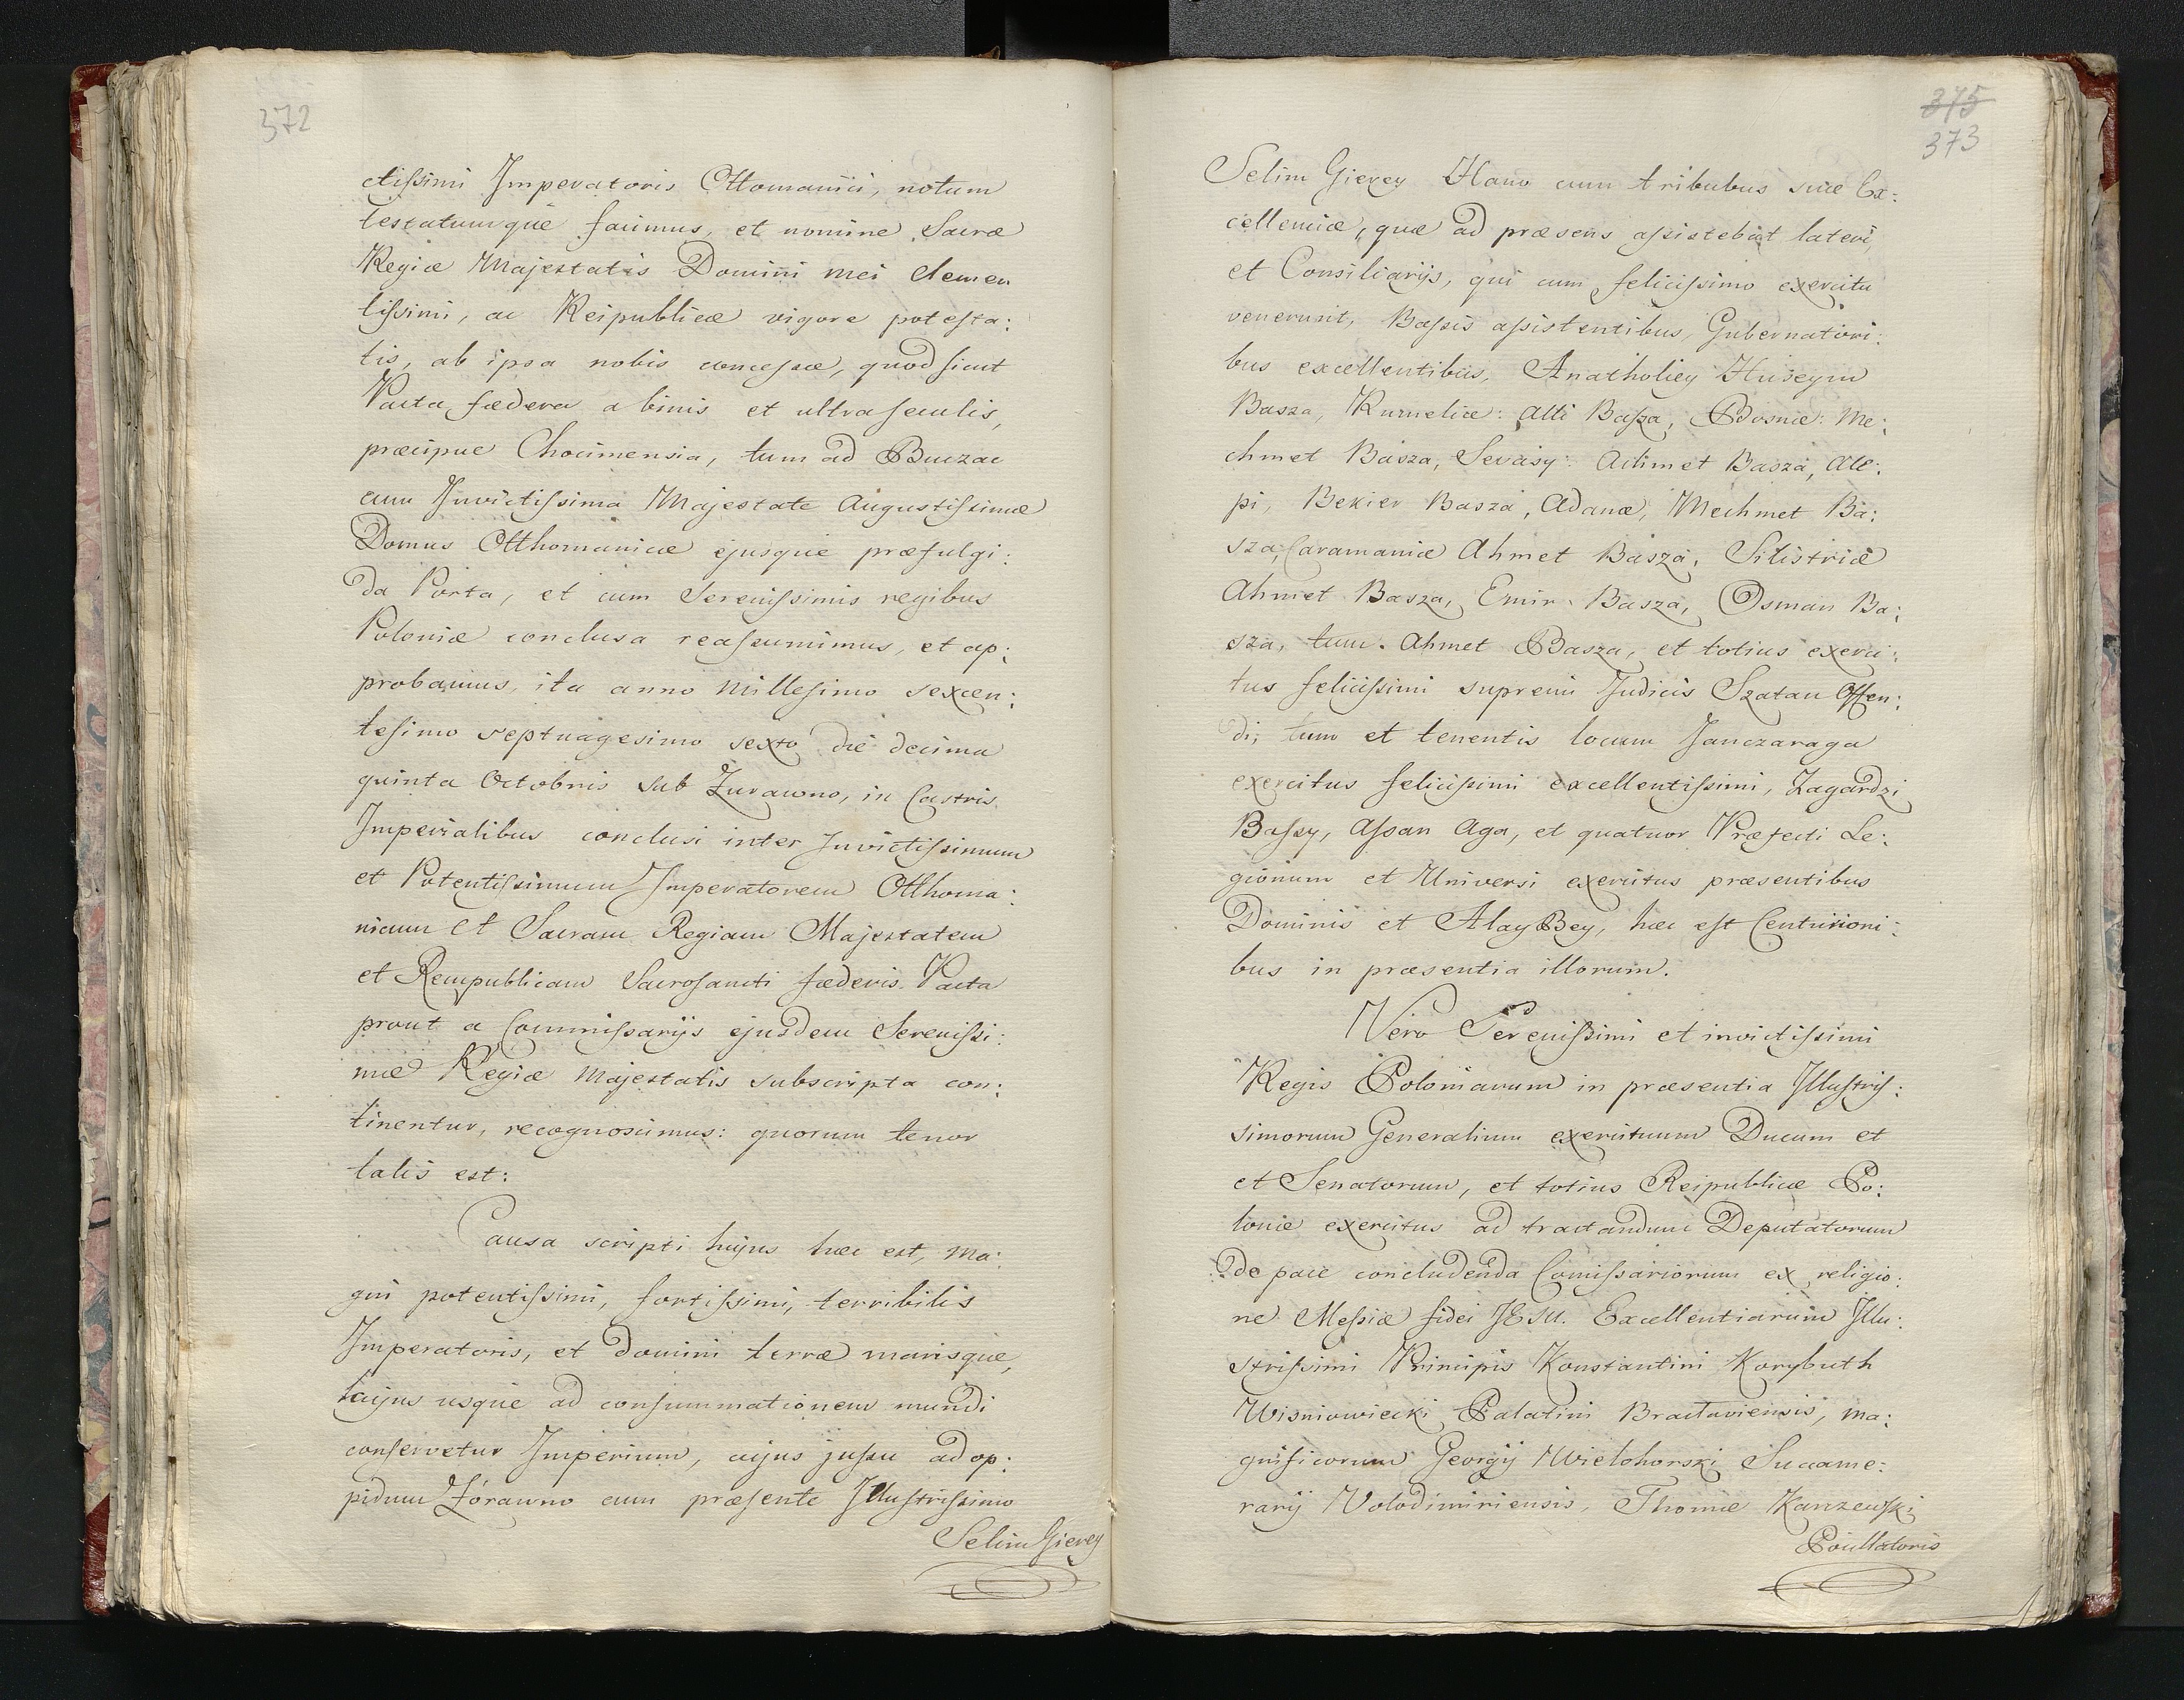 372
ctissimi Imperatoris Ottomanici, notum
testatumque facimus, et nomine Sacræ
Regiæ Majestatis Domini mei clemen
tissimi, ac Reipublicæ vigore potesta:
tis, ab ipsa nobis concessæ, quod sicut
Pacta fædera a binis et ultra seculis,
præcipue Chocimensia, tum ad Buczac
cum Invictissima Majestate Augustissimæ
Domus Otthomanicæ ejusque præfulgi:
da Porta, et cum Serenissimis regibus
Poloniæ conclusa reassumimus, et ap:
probamus, ita anno Millesimo sexcen:
tesimo septuagesimo sexto die decima
quinta Octobris sub Żurawno, in Castris
Imperialibus conclusi inter Invictissimum
et Potentissimum Imperatorem Otthoma:
nicum et Sacram Regiam Majestatem
et Rempublicam Sacrosancti fæderis Pacta
prout a Commissarijs ejusdem Serenissi:
mæ Regiæ Majestatis subscripta con:
tinentur, recognoscimus: quorum tenor
talis est:
Causa scripti hujus hæc est, ma:
gni potentissimi, fortissimi, terribilis
Imperatoris, et domini terræ marisque,
cujus usque ad consummationem mundi
conservetur Imperium, cujus jussu ad op:
pidum Żórawno cum præsente Illustrissimo
Selim Gierey
375
373
Selim Gierey Hano cum tribubus suæ Ex:
cellenciæ, quæ ad præsens assistebat lateri,
et Consiliarijs, qui cum felicissimo exercitu
venerunt, Bassis assistentibus, Gubernatori:
bus excellentibus, Anatholiey Huseym
Basza, Rumeliæ: Alli Basza, Bosniæ: Me:
chmet Basza, Sevasy: Achmet Basza, Ale:
pi, Bekier Basza, Adanæ, Mechmet Ba:
sza, Caramaniæ Ahmet Basza, Silistriæ
Ahmet Basza, Emir Basza, Osman Ba:
sza, tum. Ahmet Basza, et totius exerci:
tus felicissimi supremi Judicis Szatan Effen:
di, tum et tenentis locum Janczaraga
exercitus felicissimi excellentissimi, Zagardzi
Bassy, Assan Aga, et quatuor Præfecti Le:
gionum et Universi exercitus præsentibus
Dominis et Alay Bey, hæc est Centurioni:
bus in præsentia illorum.
Vero Serenissimi et invictissimi
Regis Poloniarum in præsentia Illustris:
simorum Generalium exercituum Ducum et
et Senatorum, et totius Reipublicæ Po:
loniæ exercitus ad tractandum Deputatorum
de pace concludenda Comissariorum ex religio:
ne Messiæ fidei JESU. Excellentiarum Illu:
strissimi Principis Konstantini Korybuth
Wisniowiecki Palatini Bractaviensis, ma:
gnificorum Georgij Wielohorski Succame:
rarij Volodimiriensis, Thomæ Karczewski
Pocillatoris